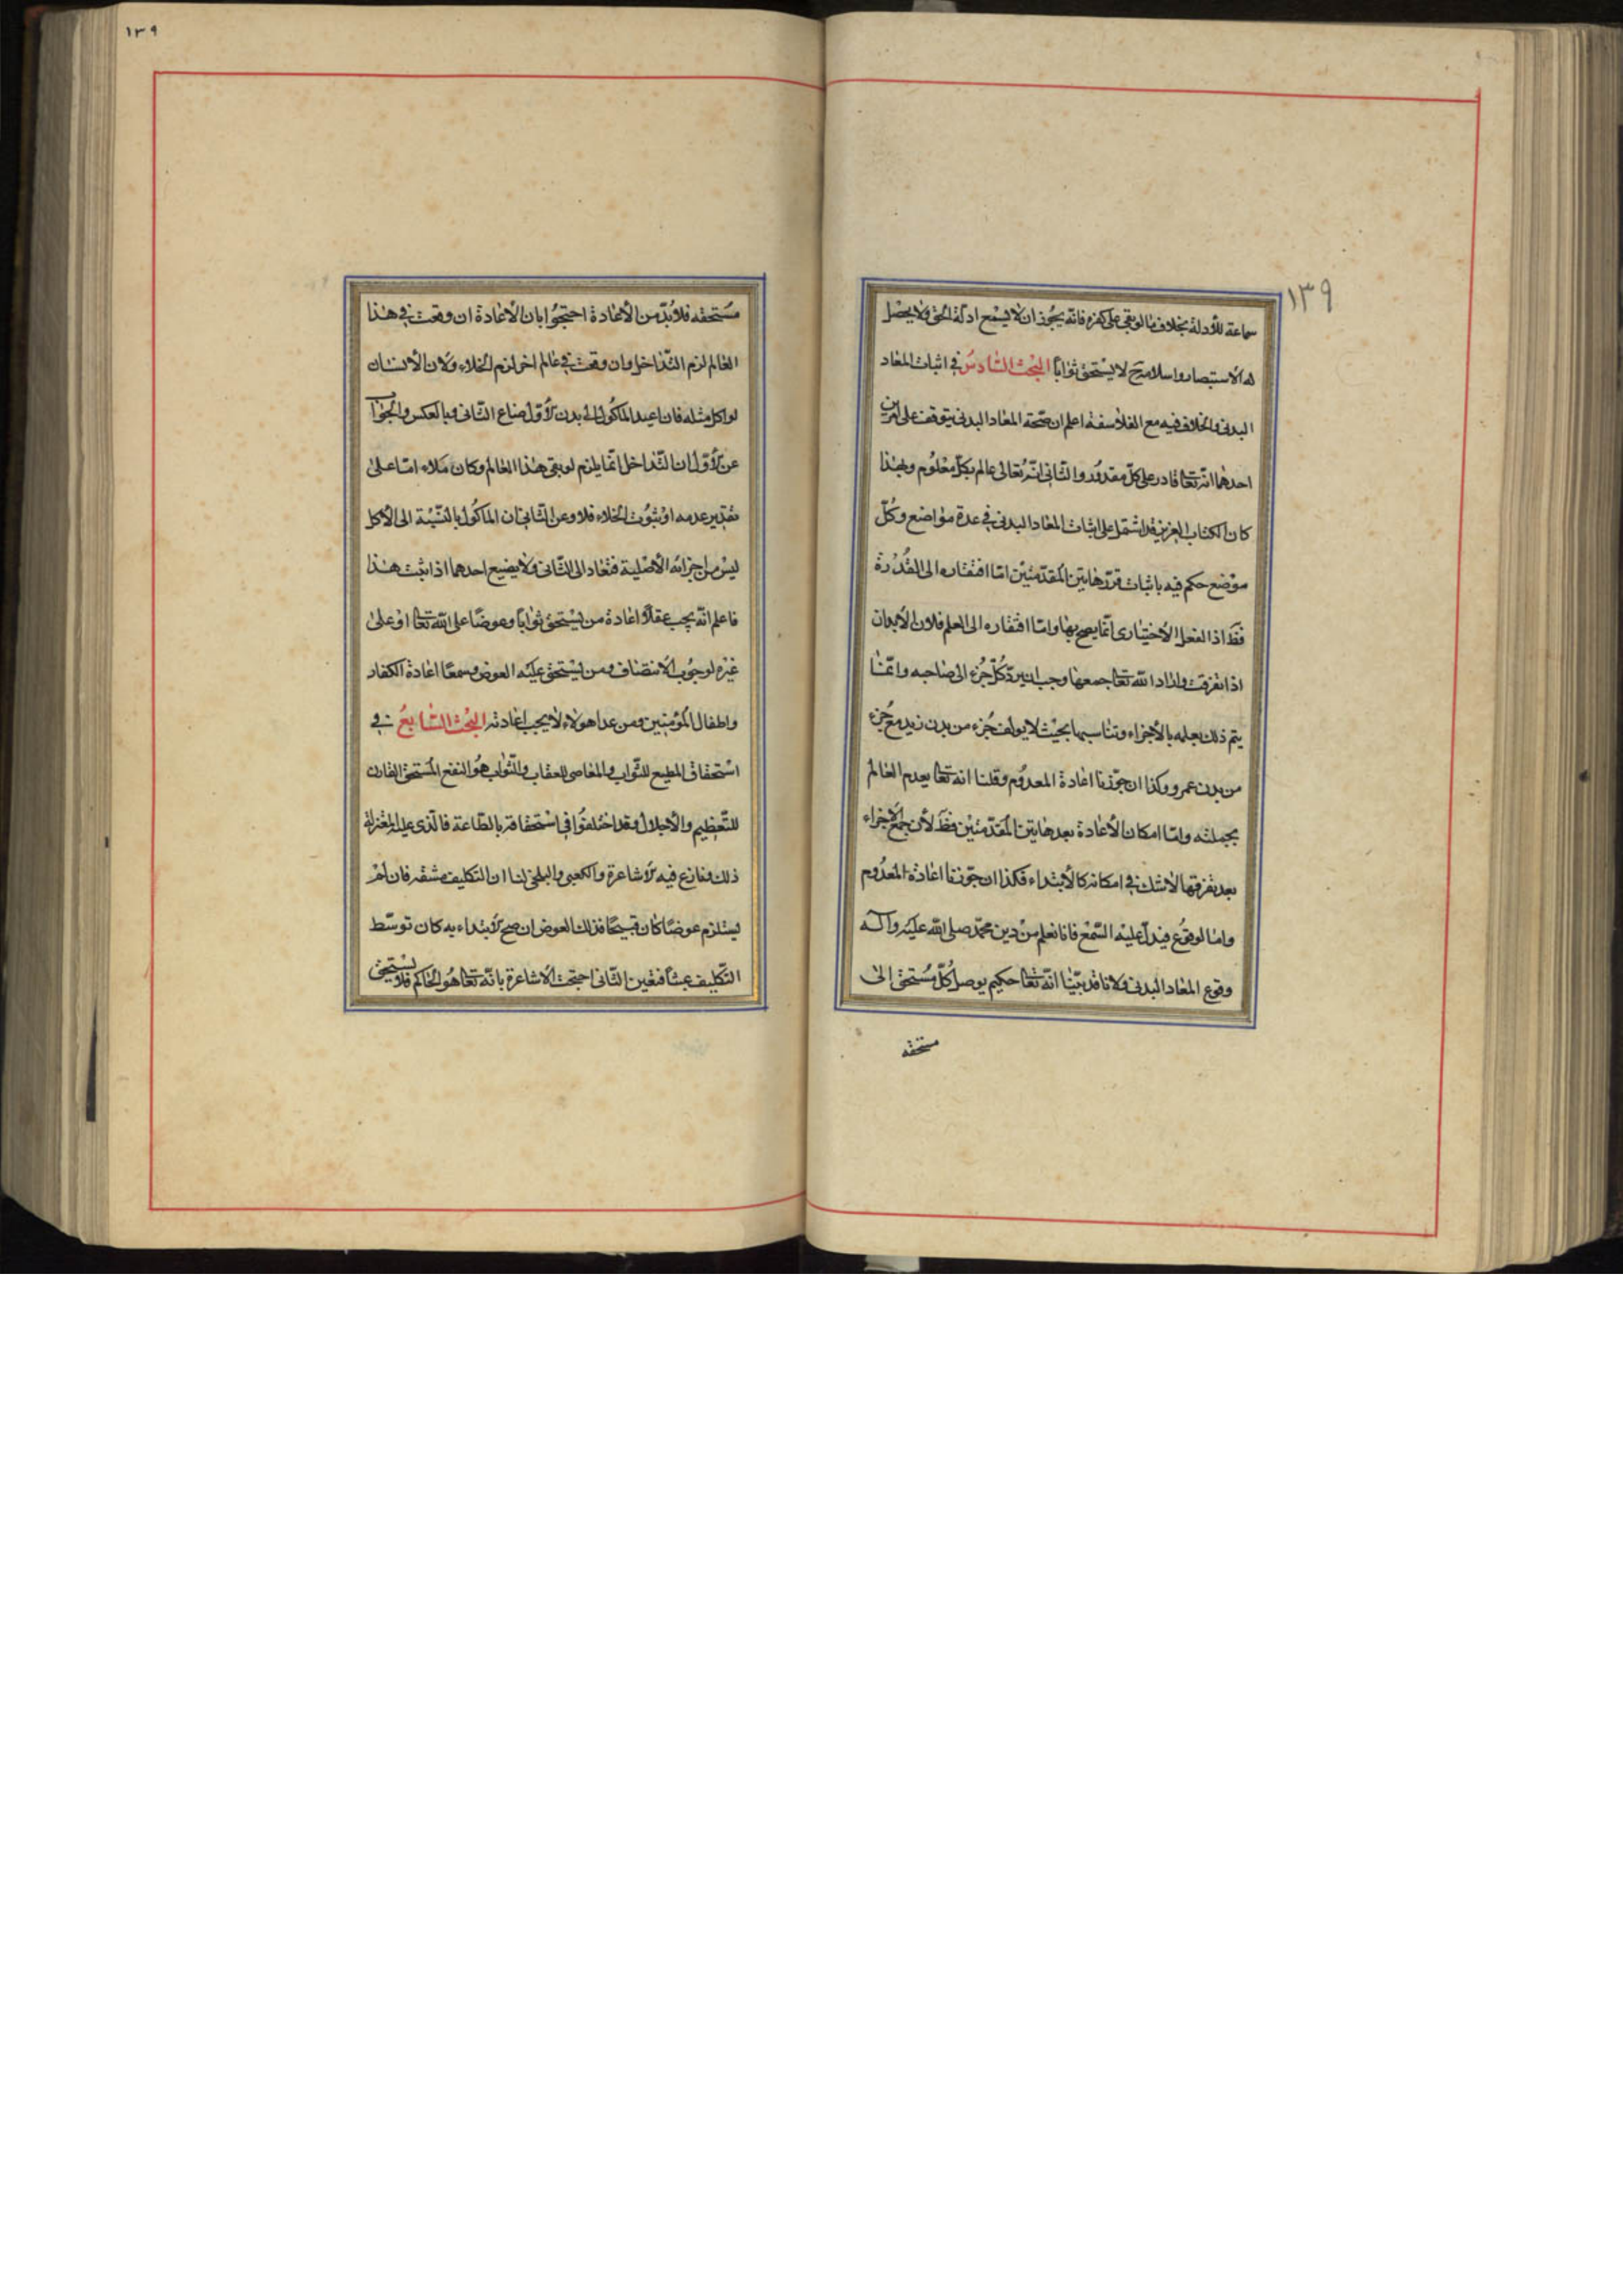 ١٣٩
سماعة للأدلة بخلاف ما لو بقى على كفره فانه يجوز ان لا يسمع ادلة الحق ولا يحصل
له الاستبصار واسلامه ح لا يستحق ثوابا البحث السادس في اثبات المعاد
البدنى والخلاف فيه مع الفلاسفة اعلم ان صحة المعاد البدنى يتوقف على امرين
احدهما انه تعالى قادر على كل مقدور والثانى انه تعالى عالم بكل معلوم ولهذا
كان الكتاب العزيز قد اشتمل على اثبات المعاد البدنى في عدة مواضع وكل
موضع حكم فيه باثباته قرر هاتين المقدمتين اما افتقاره الى القدرة
فظ اذ الفعل الاختيارى انما يصح بها واما افتقاره الى العلم فلان الأبدان
اذا تفرقت واراد الله تعالى جمعها وجب ان يرد كل جزء الى صاحبه وانما
يتم ذلك بعلمه بالأجزاء وتناسبها بحيث لا يولف جزء من بدن زيد مع جزء
من بدن عمرو وكذا ان جوزنا اعادة المعدوم وقلنا انه تعالى يعدم العالم
بجملته واما امكان الأعادة بعد هاتين المقدمتين فظ لأن جمع الاجزاء
بعد تفرقها لا شك في امكانه كالأبتداء فكذا ان جوزنا اعادة المعدوم
واما الوقوع فيدل عليه السمع فانا نعلم من دين محمد صلى الله عليه وآله
وقوع المعاد البدنى ولانا قد بينا انه تعالى حكيم يوصل كل مستحق الى
مستحقه
١٣٩
مستحقه فلا بد من الأعادة احتجوا بان الأعادة ان وقعت في هذا
العالم لزم التداخل وان وقعت في عالم اخر لزم الخلاء ولان الأنسان
لو اكل مثله فان اعيد الماكول الى بدن الأول ضاع الثانى وبالعكس والجواب
عن الأول ان التداخل انما يلزم لو بقى هذا العالم وكان ملاء اما على
تقدير عدمه او ثبوت الخلاء فلا وعن الثانى ان الماكول بالنسبة الى الأكل
ليس من اجزائه الأصلية فتعاد الى الثانى ولا يضيع احدهما اذا ثبت هذا
فاعلم انه يجب عقلا اعادة من يستحق ثوابا وعوضا على الله تعالى او على
غيره لوجوب الانتصاف ومن يستحق عليه العوض وسمعا اعادة الكفار
واطفال المؤمنين ومن عدا هولاء لا يجب اعادته البحث السابع في
استحقاق المطيع للثواب والعاصى للعقاب والثواب هو النفع المستحق المقارن
للتعظيم والأجلال وقد اختلفوا في استحقاقه بالطاعة فالذى عليه المعتزلة
ذلك ونازع فيه الأشاعرة والكعبى والبلخى لنا ان التكليف مشقه فان لم
يستلزم عوضا كان قبيحا فذلك العوض ان صح الأبتداء به كان توسط
التكليف عبثا فتعين الثانى احتجت الاشاعرة بانه تعالى هو الحاكم فلا يستحق